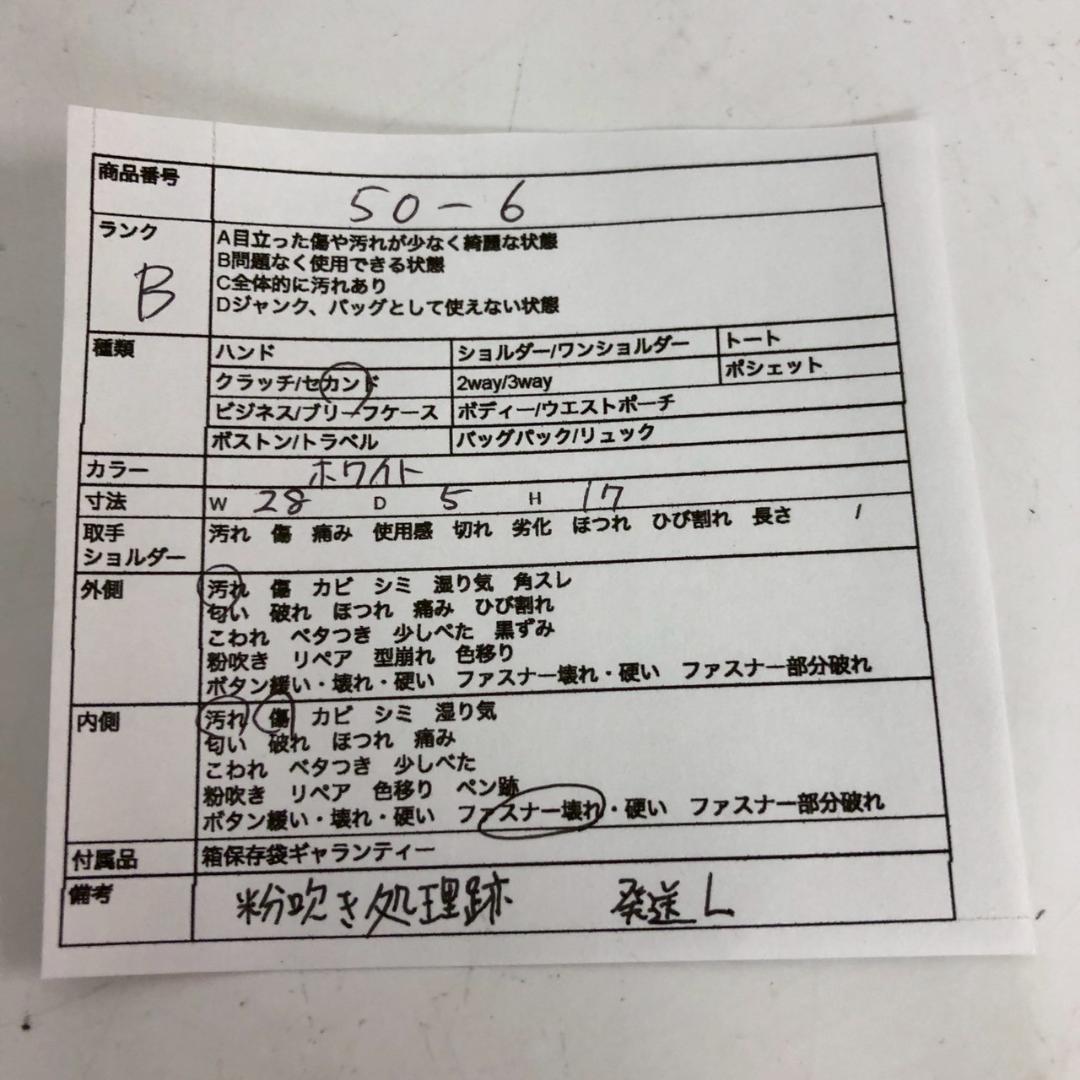 商品番号 50-6
ランク B
A目立った傷や汚れが少なく綺麗な状態
B問題なく使用できる状態
C全体的に汚れあり
Dジャンク、バッグとして使えない状態
種類 ハンド ショルダー/ワンショルダー トート
クラッチ/セカンド 2way/3way ポシェット
ビジネス/ブリーフケース ボディー/ウエストポーチ
ボストン/トラベル バッグパック/リュック
カラー ホワイト
寸法 W 28 D 5 H 17
取手 汚れ 傷 痛み 使用感 切れ 劣化 ほつれ ひび割れ 長さ /
ショルダー
外側 汚れ 傷 カビ シミ 湿り気 角スレ
匂い 破れ ほつれ 痛み ひび割れ
こわれ ベタつき 少しべた 黒ずみ
粉吹き リペア 型崩れ 色移り
ボタン緩い・壊れ・硬い ファスナー壊れ・硬い ファスナー部分破れ
内側 汚れ 傷 カビ シミ 湿り気
匂い 破れ ほつれ 痛み
こわれ ベタつき 少しべた
粉吹き リペア 色移り ペン跡
ボタン緩い・壊れ・硬い ファスナー壊れ・硬い ファスナー部分破れ
付属品 箱保存袋ギャランティー
備考 粉吹き処理跡 発送L